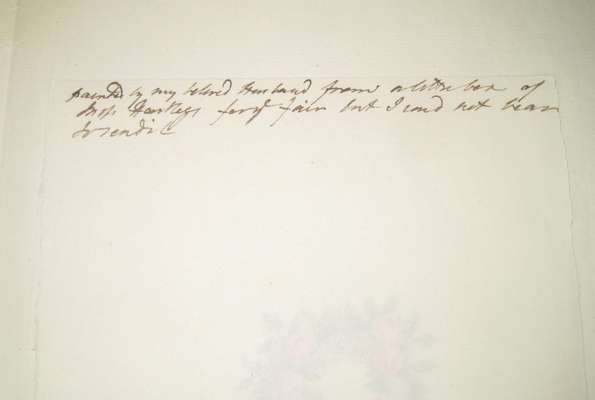 painted by my beloved Husband from a little box of
Miss Hartleys for fair but I coud not bear
to send it